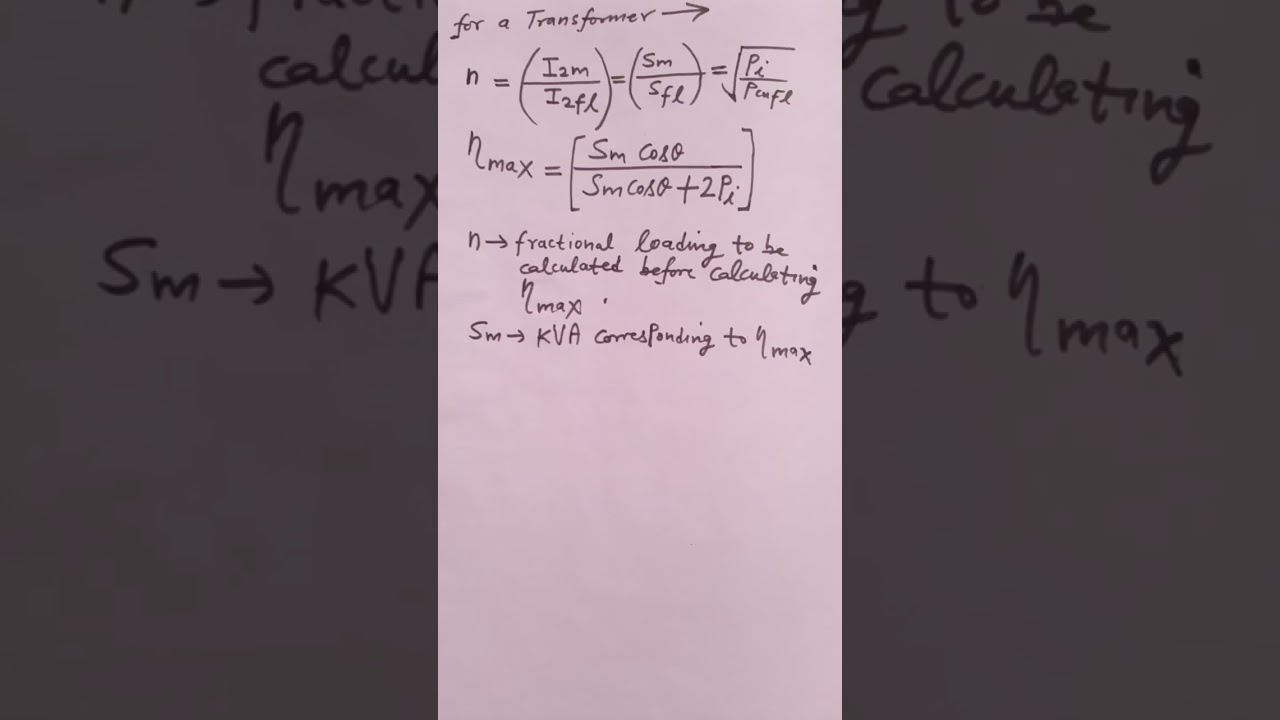 for a Transformer →
n = (I2m / I2fl) = (Sm / Sfl) = √(Pi / Pcufl)
ηmax = [Sm cosθ / Sm cosθ + 2Pi]
n → fractional loading to be
calculated before calculating
ηmax .
Sm → KVA corresponding to ηmax